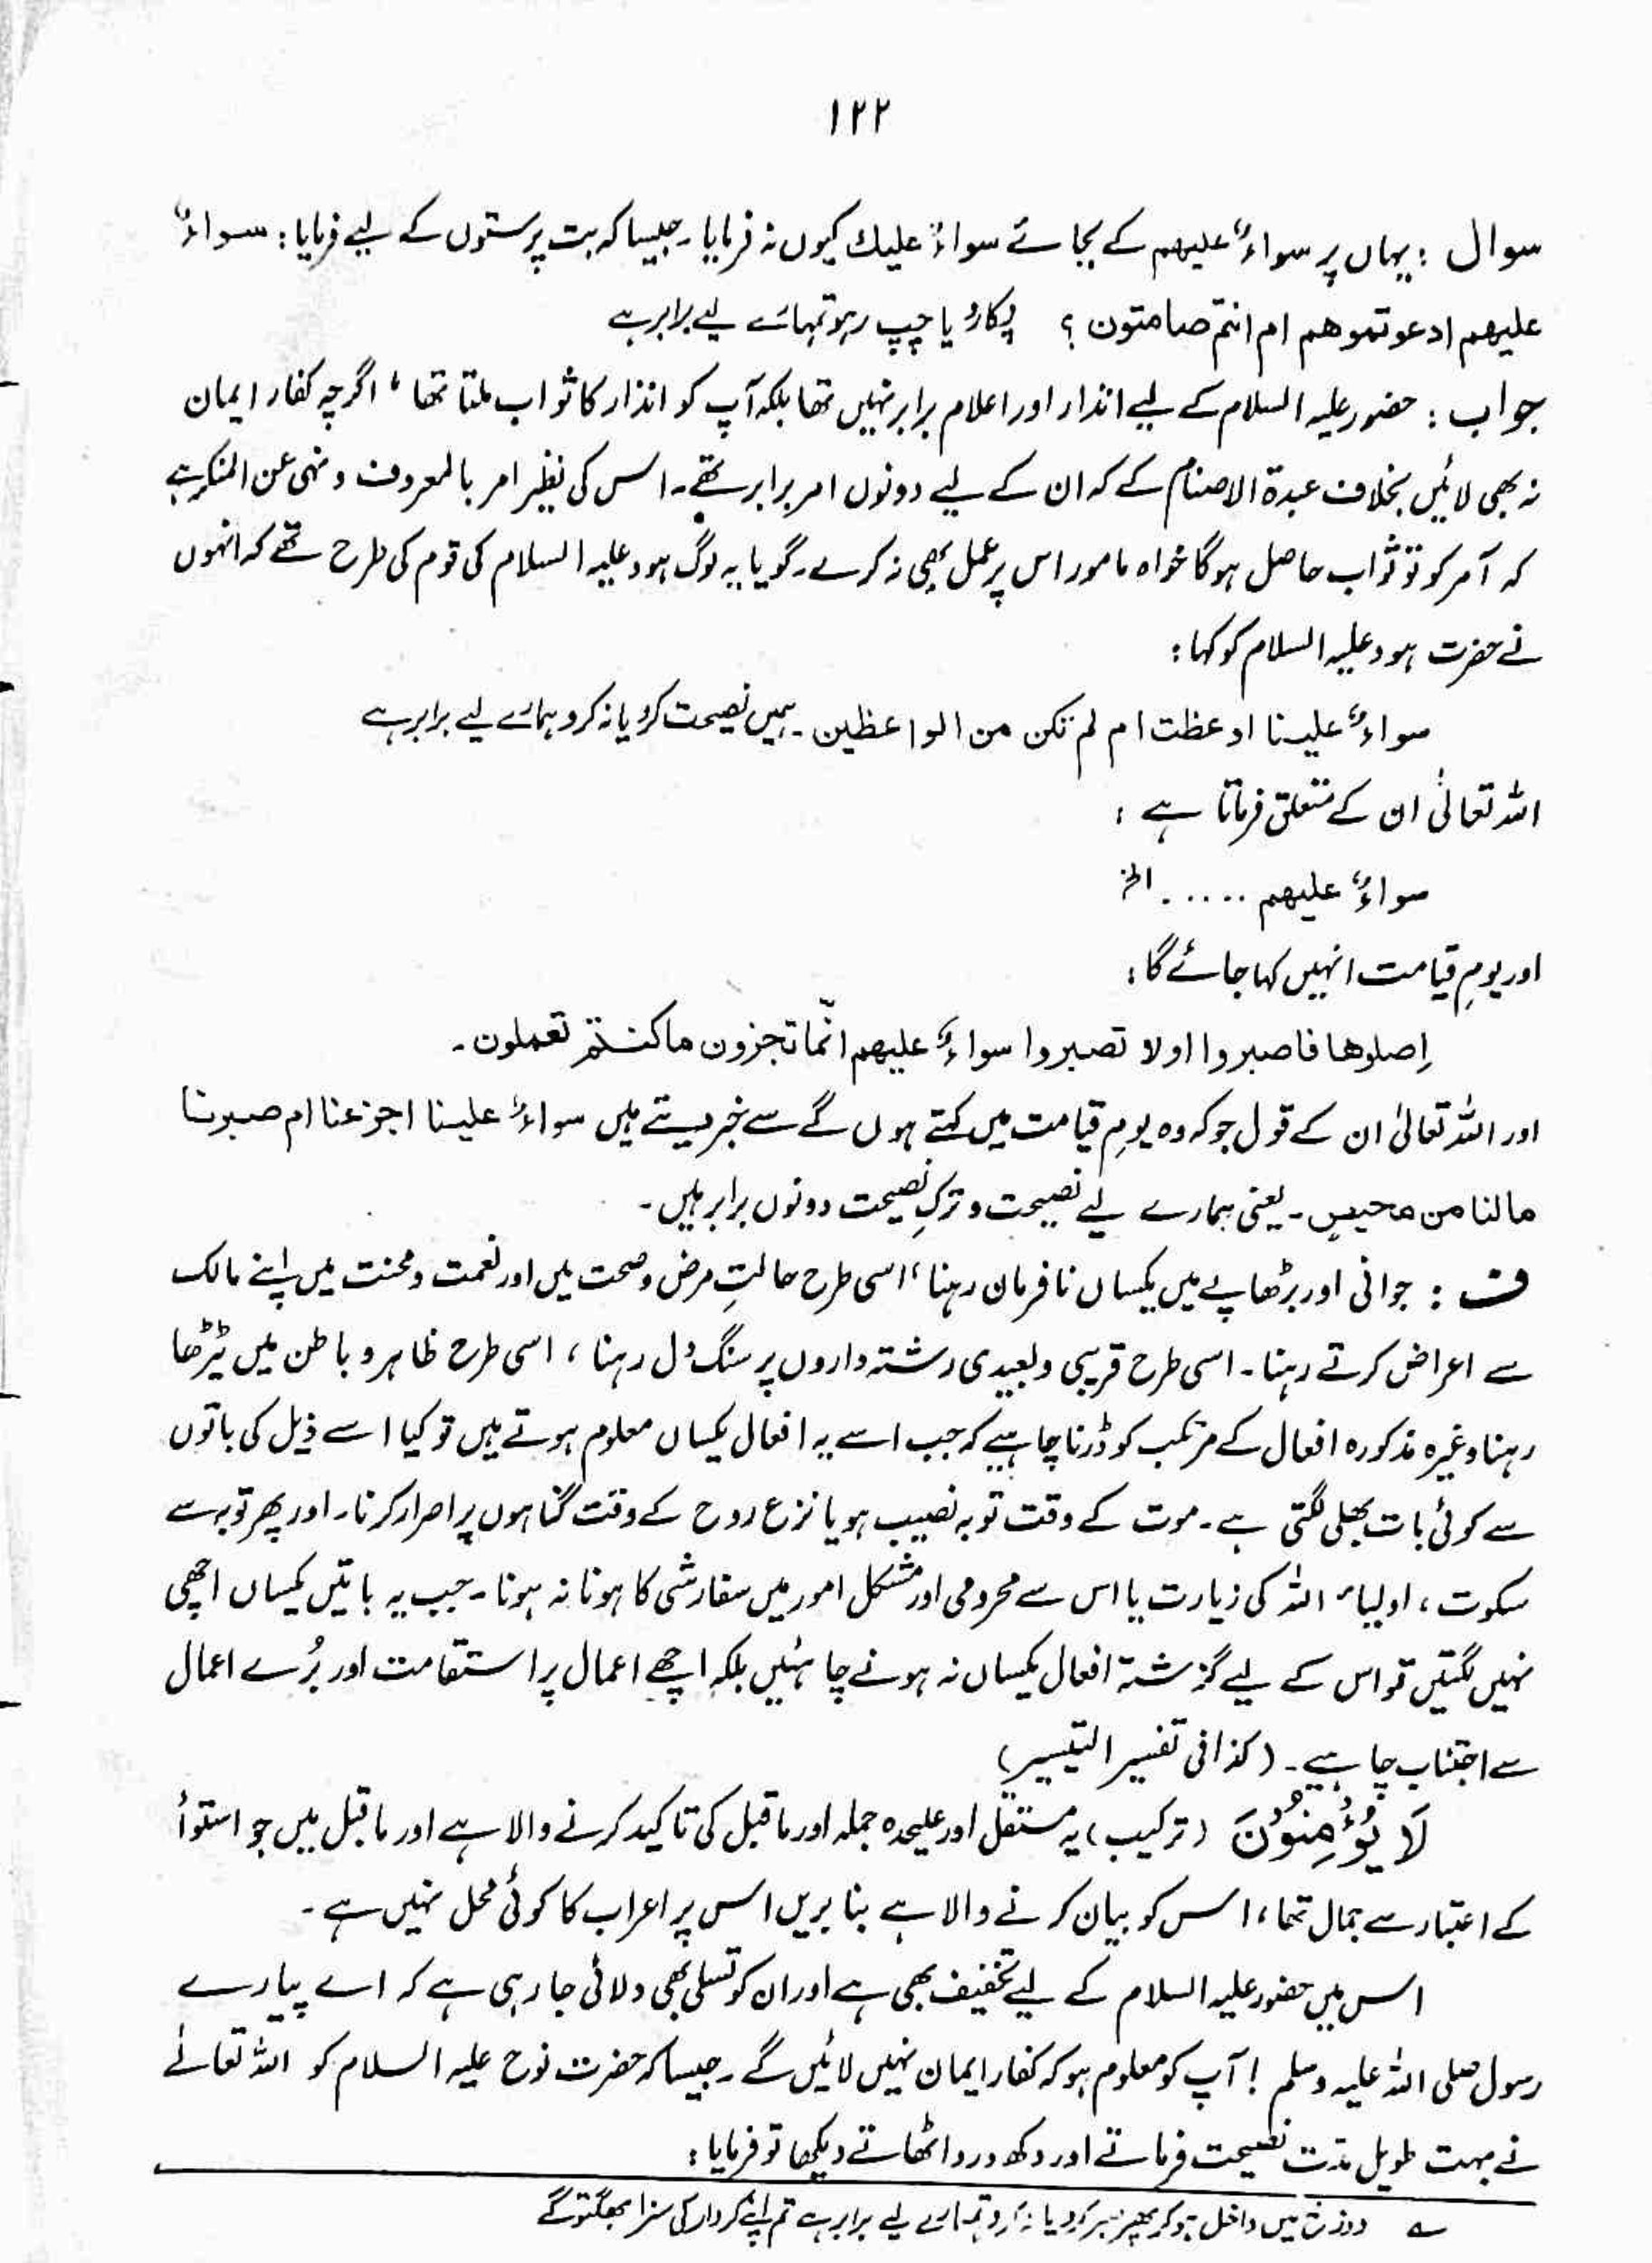 ۱۲۲
سوال : یہاں پر سواءٌ علیھم کے بجائے سواءٌ علیك کیوں نہ فرمایا۔ جیسا کہ بت پرستوں کے لیے فرمایا : سواءٌ
علیھم ادعوتموھم ام انتم صامتون ؟ پکارو یا چپ رہو تمہارے لیے برابر ہے
جواب : حضور علیہ السلام کے لیے انذار اور اعلام برابر نہیں تھا بلکہ آپ کو انذار کا ثواب ملتا تھا ، اگرچہ کفار ایمان
نہ بھی لائیں بخلاف عبدۃ الاصنام کے کہ ان کے لیے دونوں امر برابر تھے۔ اس کی نظیر امر بالمعروف و نہی عن المنکر ہے
کہ آمر کو تو ثواب حاصل ہوگا خواہ مامور اس پر عمل بھی نہ کرے۔ گویا یہ لوگ ہود علیہ السلام کی قوم کی طرح تھے کہ انہوں
نے حضرت ہود علیہ السلام کو کہا :
سواءٌ علینا اوعظت ام لم تکن من الواعظین ۔ ہمیں نصیحت کرو یا نہ کرو ہمارے لیے برابر ہے
اللہ تعالیٰ ان کے متعلق فرماتا ہے :
سواءٌ علیھم ..... الخ
اور یومِ قیامت انہیں کہا جائے گا :
اِصلوھا فاصبروا اولا تصبروا سواءٌ علیھم انّما تجزون ما کنتم تعملون ۔
اور اللہ تعالیٰ ان کے قول جو کہ وہ یومِ قیامت میں کہتے ہوں گے سے خبر دیتے ہیں سواءٌ علینا اجزعنا ام صبرنا
مالنا من محیصٍ ۔ یعنی ہمارے لیے نصیحت و ترکِ نصیحت دونوں برابر ہیں ۔
ف : جوانی اور بڑھاپے میں یکساں نافرمان رہنا ، اسی طرح حالتِ مرض و صحت میں اور نعمت و محنت میں اپنے مالک
سے اعراض کرتے رہنا ۔ اسی طرح قریبی و بعیدی رشتہ داروں پر سنگ دل رہنا ، اسی طرح ظاہر و باطن میں ٹیڑھا
رہنا وغیرہ مذکورہ افعال کے مرتکب کو ڈرنا چاہیے کہ جب اسے یہ افعال یکساں معلوم ہوتے ہیں تو کیا اسے ذیل کی باتوں
سے کوئی بات بھلی لگتی ہے ۔ موت کے وقت توبہ نصیب ہو یا نزع روح کے وقت گناہوں پر اصرار کرنا ۔ اور پھر توبہ سے
سکوت ، اولیاء اللہ کی زیارت یا اس سے محرومی اور مشکل امور میں سفارشی کا ہونا نہ ہونا ۔ جب یہ باتیں یکساں اچھی
نہیں لگتیں تو اس کے لیے گزشتہ افعال یکساں نہ ہونے چاہئیں بلکہ اچھے اعمال پر استقامت اور بُرے اعمال
سے اجتناب چاہیے ۔ (کذا فی تفسیر التیسیر)
لَا یُؤْمِنُوْنَ (ترکیب) یہ مستقل اور علیحدہ جملہ اور ماقبل کی تاکید کرنے والا ہے اور ماقبل میں جو استواٴ
کے اعتبار سے جمال تھا ، اس کو بیان کرنے والا ہے بنا بریں اس پر اعراب کا کوئی محل نہیں ہے ۔
اس میں حضور علیہ السلام کے لیے تخفیف بھی ہے اور ان کو تسلی بھی دلائی جا رہی ہے کہ اے پیارے
رسول صلی اللہ علیہ وسلم ! آپ کو معلوم ہو کہ کفار ایمان نہیں لائیں گے ۔ جیسا کہ حضرت نوح علیہ السلام کو اللہ تعالےٰ
نے بہت طویل مدّت نصیحت فرماتے اور دکھ درد اٹھاتے دیکھا تو فرمایا :
؎ دوزخ میں داخل ہو کر پھر صبر کرو یا نہ کرو تمہارے لیے برابر ہے تم اپنے کردار کی سزا بھگتو گے